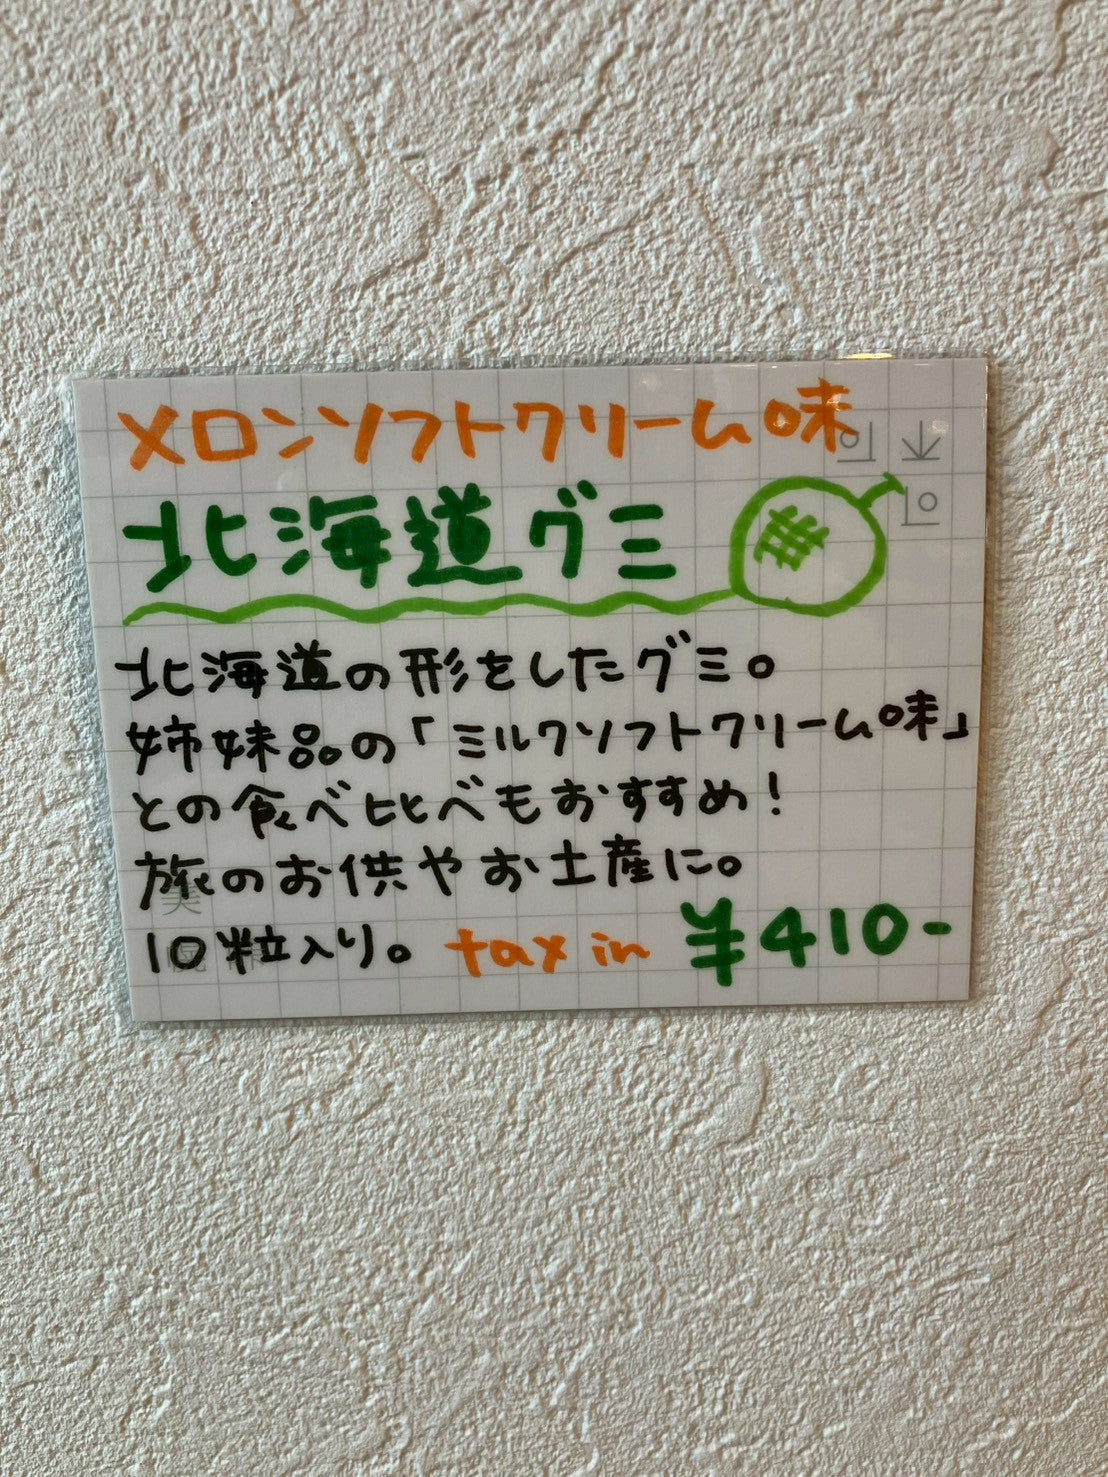 メロンソフトクリーム味
北海道グミ
北海道の形をしたグミ。
姉妹品の「ミルクソフトクリーム味」
との食べ比べもおすすめ!
旅のお供やお土産に。
10粒入り。 tax in ¥410-